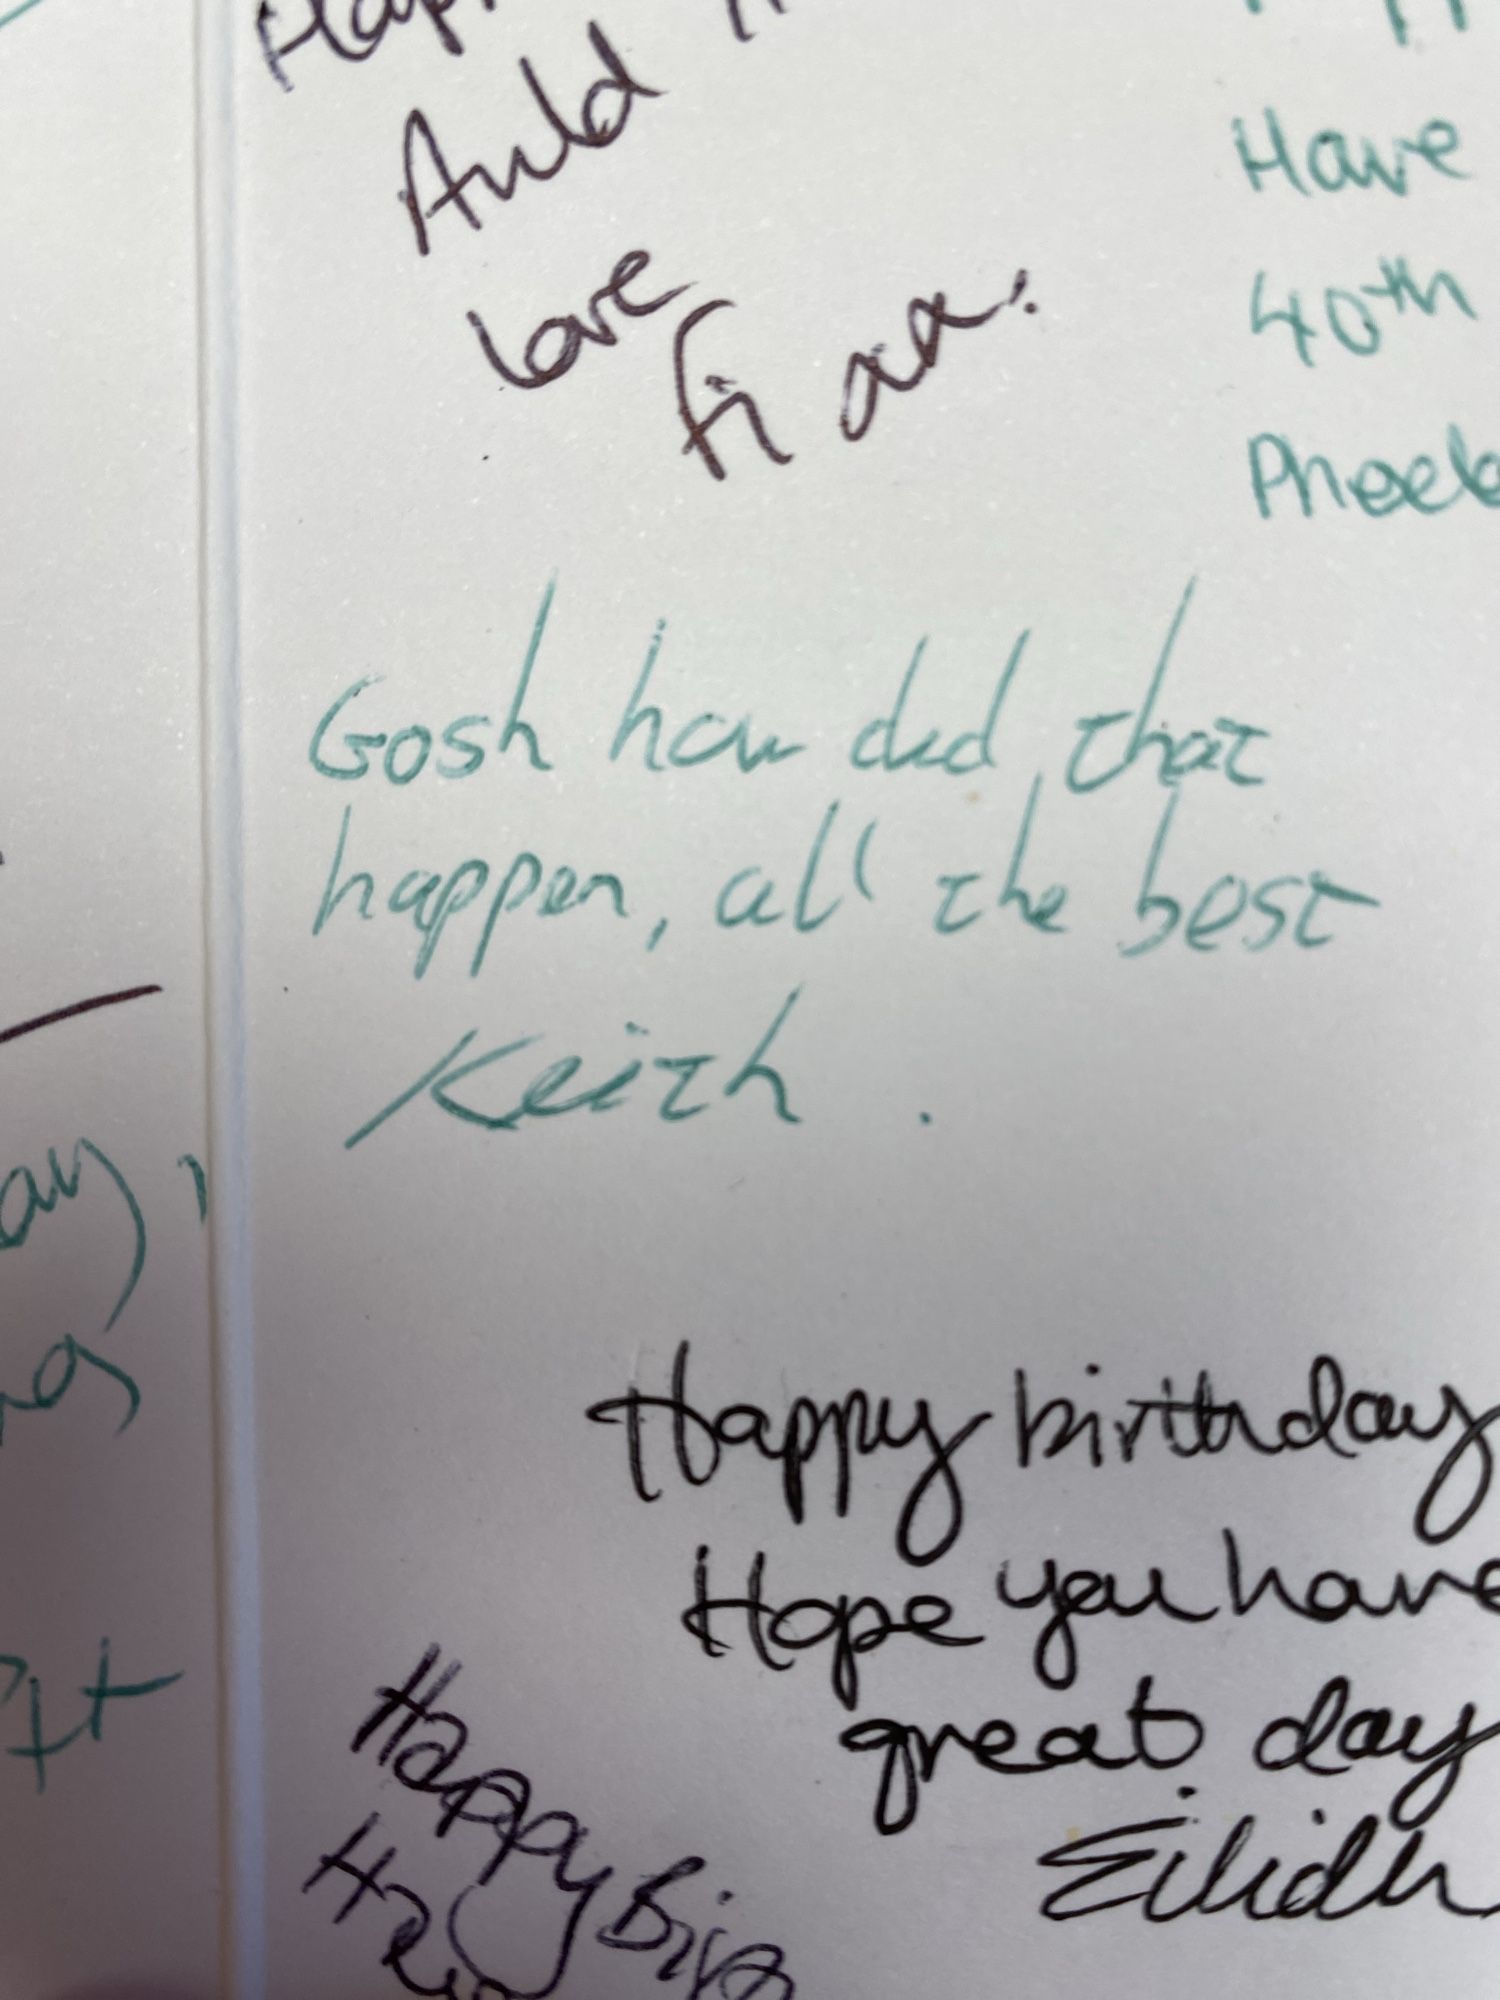 Auld
love
Fi xx.
Have
40th
Gosh how did that
happen, all the best
Keith.
Happy birthday
Hope you have
great day
Eilidh
Happy